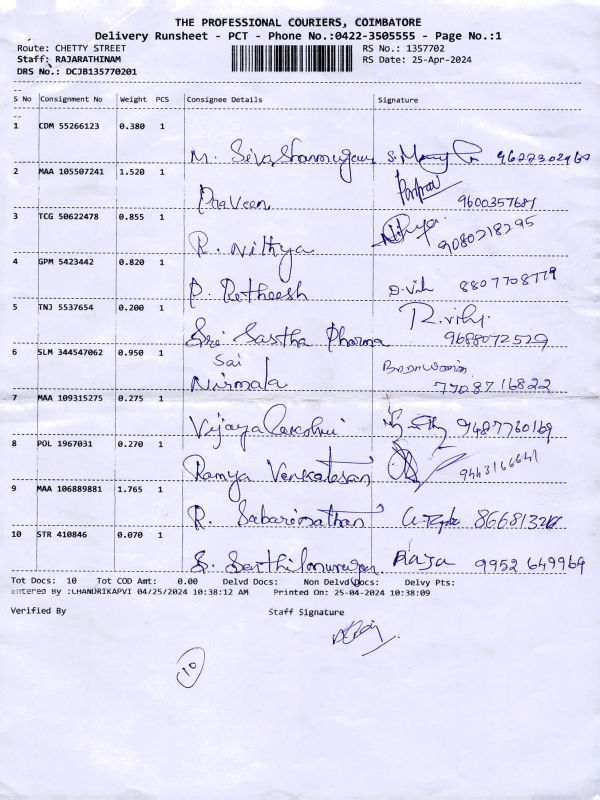 THE PROFESSIONAL COURIERS, COIMBATORE
Delivery Runsheet - PCT - Phone No.:0422-3505555 - Page No.:1
Route: CHETTY STREET RS No.: 1357702
Staff: RAJARATHINAM RS Date: 25-Apr-2024
DRS No.: DCJB135770201
S No Consignment No Weight PCS Consignee Details Signature
1 CDM 55266123 0.380 1
M. Sivashanmugam
2 MAA 105507241 1.520 1
Praveen 9600357681
3 TCG 50622478 0.855 1
R. Nithya Nithya 9080218295
4 GPM 5423442 0.820 1
P. Retheesh 8807708779
5 TNJ 5537654 0.200 1
Sri Sastha Pharma R. viji. 9688072529
6 SLM 344547062 0.950 1
Sai
Nirmala 7708716822
7 MAA 109315275 0.275 1
Vijayalakshmi 9487760169
8 POL 1967031 0.270 1
Ramya Venkatesan 9443166641
9 MAA 106889881 1.765 1
R. Sabarinathan
10 STR 410846 0.070 1
RAJA 9952649969
Tot Docs: 10 Tot COD Amt: 0.00 Delvd Docs: Non Delvd Docs: Delvy Pts:
Entered By :CHANDRIKAPVI 04/25/2024 10:38:12 AM Printed On: 25-04-2024 10:38:09
Verified By Staff Signature
10